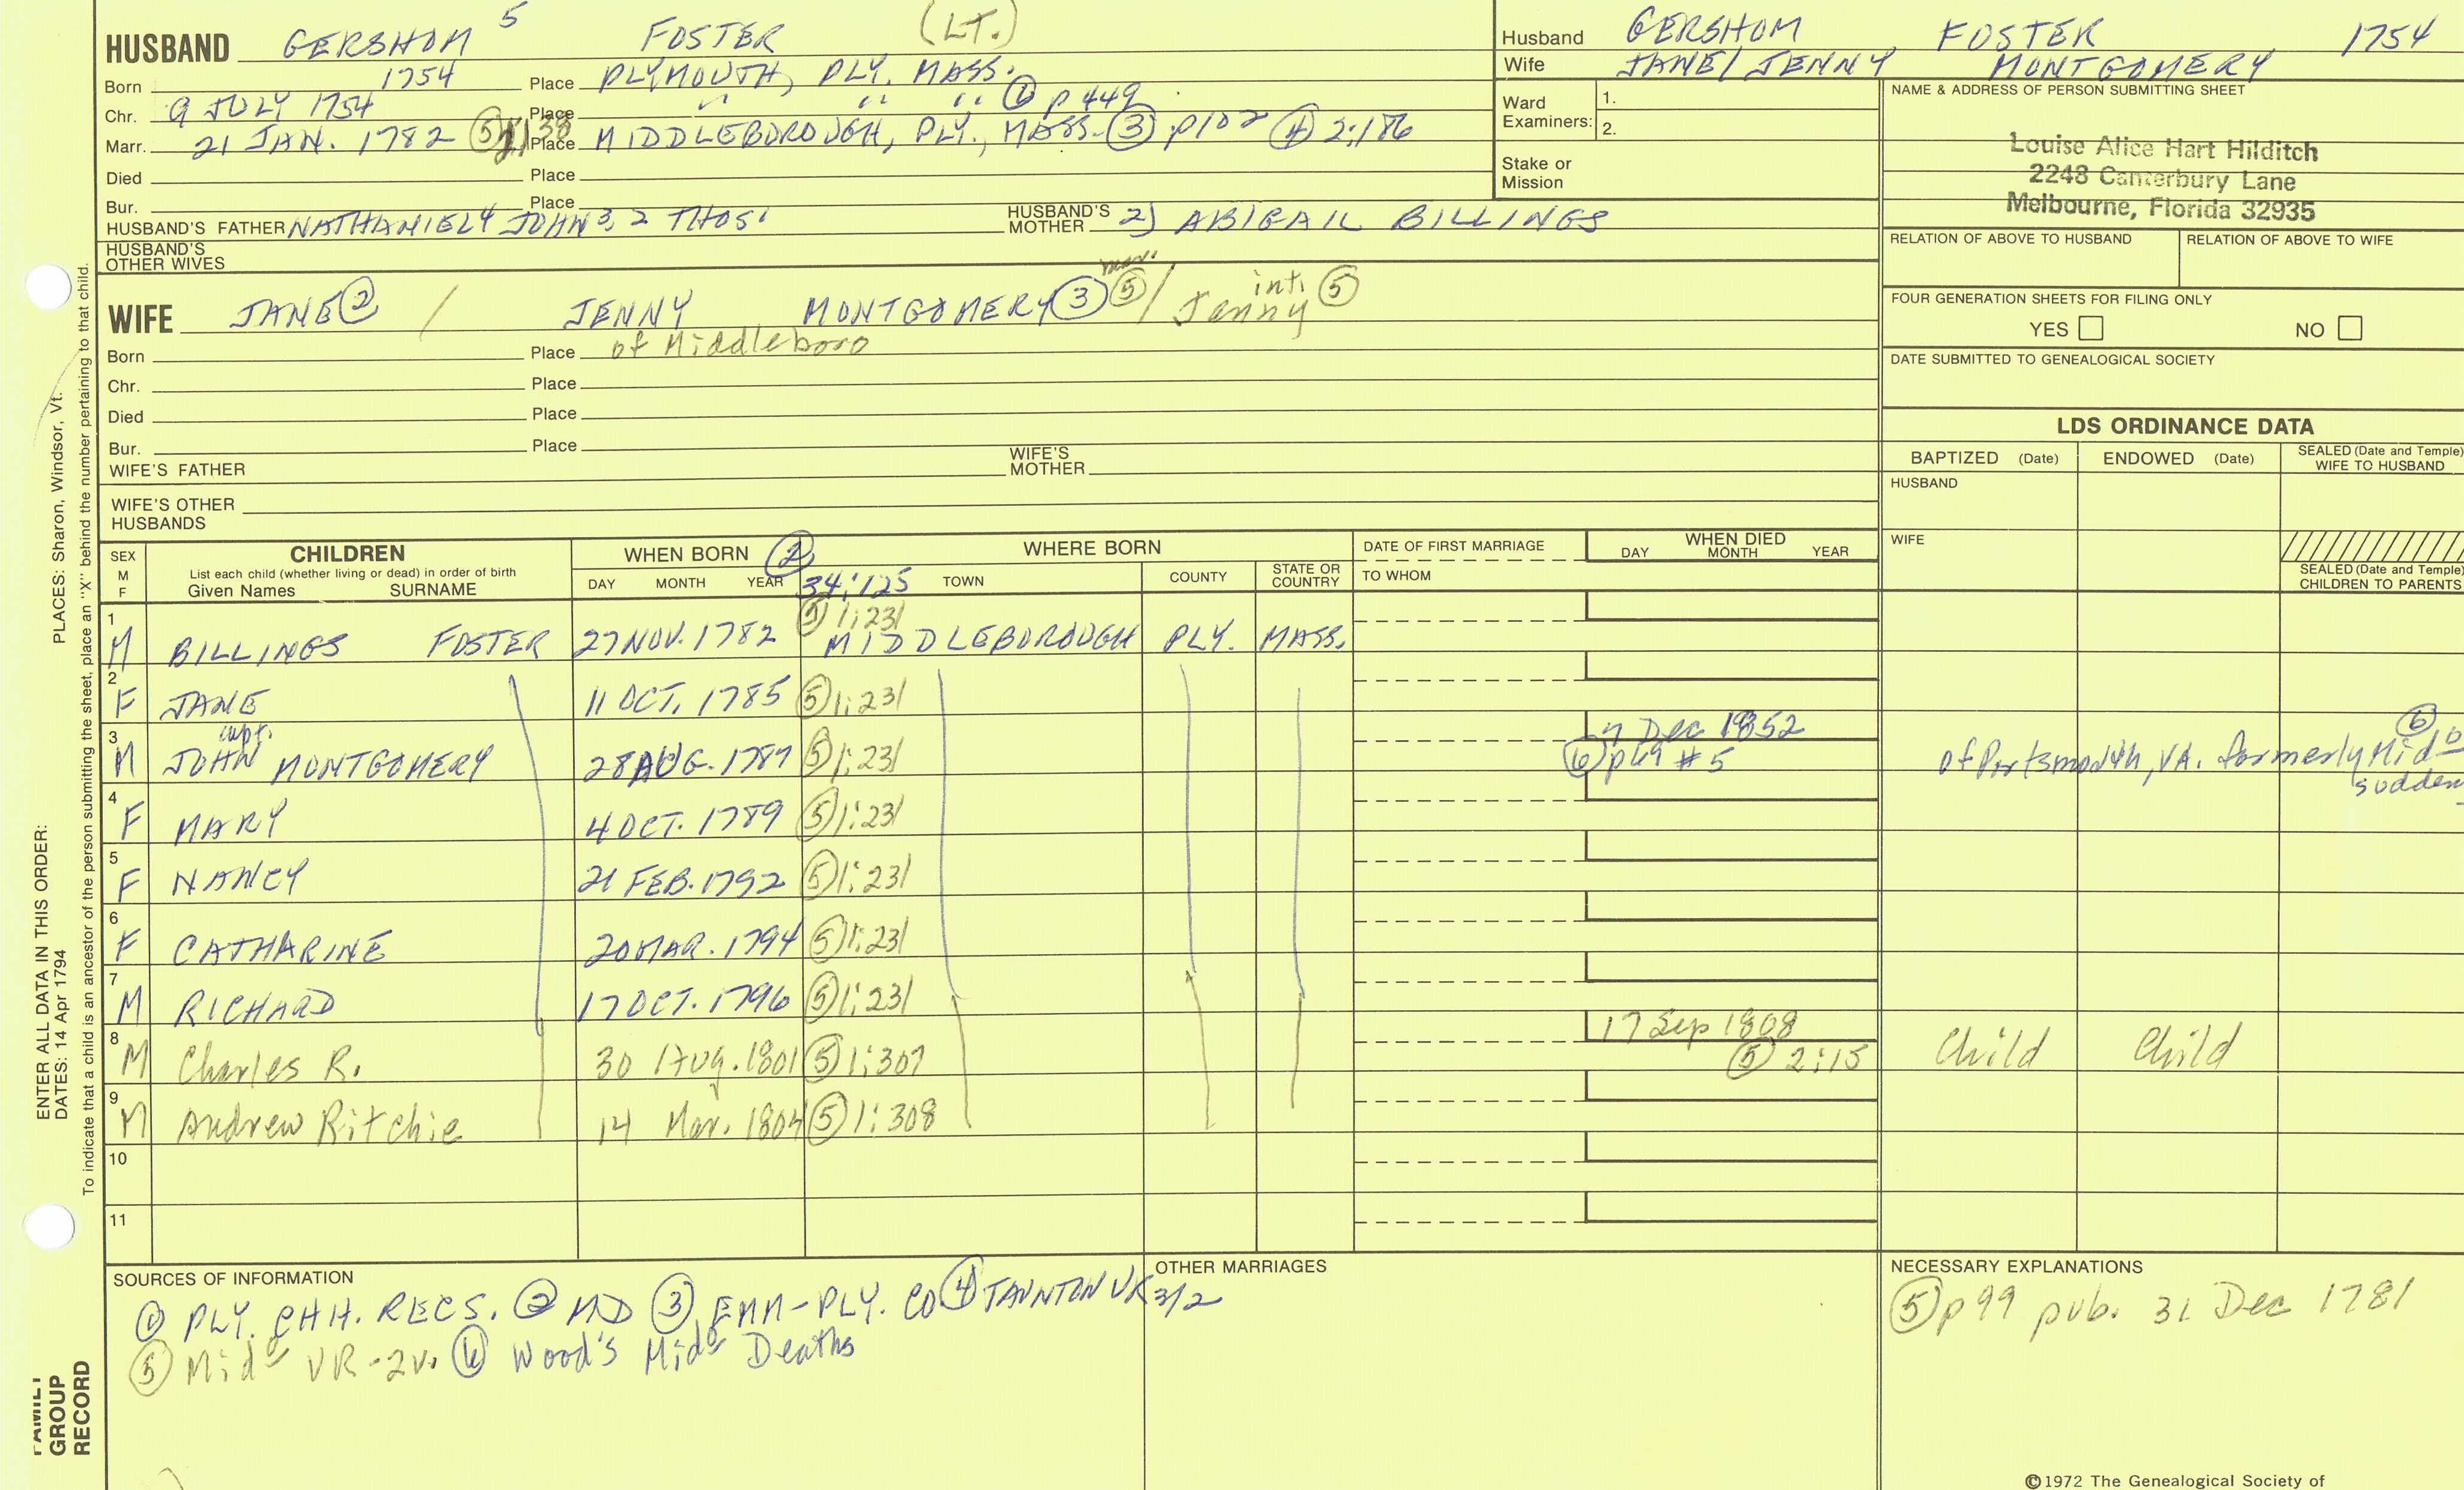 HUSBAND GERSHOM 5 FOSTER (LT.)
Born 1754 Place PLYMOUTH, PLY. MASS.
Chr. 9 JULY 1754 Place " " " ① p 449
Marr. 21 JAN. 1782 ⑤ Place MIDDLEBOROUGH, PLY., MASS. ③ p102 ④ 2:186
Died Place
Bur. Place
HUSBAND'S FATHER NATHANIEL4 JOHN3, 2 THOS1 HUSBAND'S MOTHER 2) ABIGAIL BILLINGS
HUSBAND'S OTHER WIVES
WIFE JANE② / JENNY MONTGOMERY③ mar. ⑤ / Jenny int. ⑤
Born Place of Middleboro
Chr. Place
Died Place
Bur. Place
WIFE'S FATHER WIFE'S MOTHER
WIFE'S OTHER HUSBANDS
Husband GERSHOM FOSTER 1754
Wife JANE/JENNY MONTGOMERY
Ward Examiners: 1.
2.
Stake or Mission
NAME & ADDRESS OF PERSON SUBMITTING SHEET
Louise Alice Hart Hilditch
2248 Canterbury Lane
Melbourne, Florida 32935
RELATION OF ABOVE TO HUSBAND RELATION OF ABOVE TO WIFE
FOUR GENERATION SHEETS FOR FILING ONLY
YES NO
DATE SUBMITTED TO GENEALOGICAL SOCIETY
LDS ORDINANCE DATA
BAPTIZED (Date) ENDOWED (Date) SEALED (Date and Temple) WIFE TO HUSBAND
HUSBAND
WIFE
SEALED (Date and Temple) CHILDREN TO PARENTS
SEX M F CHILDREN WHEN BORN ② WHERE BORN DATE OF FIRST MARRIAGE WHEN DIED
List each child (whether living or dead) in order of birth
Given Names SURNAME DAY MONTH YEAR 34:125 TOWN COUNTY STATE OR COUNTRY TO WHOM DAY MONTH YEAR
1 M BILLINGS FOSTER 27 NOV. 1782 ⑤ 1:231 MIDDLEBOROUGH PLY. MASS.
2 F JANE 11 OCT. 1785 ⑤ 1:231
3 M capt. JOHN MONTGOMERY 28 AUG. 1787 ⑤ 1:231 7 Dec 1852 ⑥ p69 #5 of Portsmouth, VA. formerly Mido ⑥ sudden
4 F MARY 4 OCT. 1789 ⑤ 1:231
5 F NANCY 21 FEB. 1792 ⑤ 1:231
6 F CATHARINE 20 MAR. 1794 ⑤ 1:231
7 M RICHARD 17 OCT. 1796 ⑤ 1:231
8 M Charles R. 30 Aug. 1801 ⑤ 1:307 17 Sep 1808 ⑤ 2:15 Child Child
9 M Andrew Ritchie 14 Mar. 1804 ⑤ 1:308
10
11
SOURCES OF INFORMATION
① PLY. CHH. RECS. ② MD ③ EMM-PLY. CO ④ TAUNTON VR
⑤ Mido VR-2v. ⑥ Wood's Mido Deaths
OTHER MARRIAGES
NECESSARY EXPLANATIONS
⑤ p99 pub. 31 Dec 1781
©1972 The Genealogical Society of
ENTER ALL DATA IN THIS ORDER: PLACES: Sharon, Windsor, Vt.
DATES: 14 Apr 1794
To indicate that a child is an ancestor of the person submitting the sheet, place an "X" behind the number pertaining to that child.
FAMILY GROUP RECORD